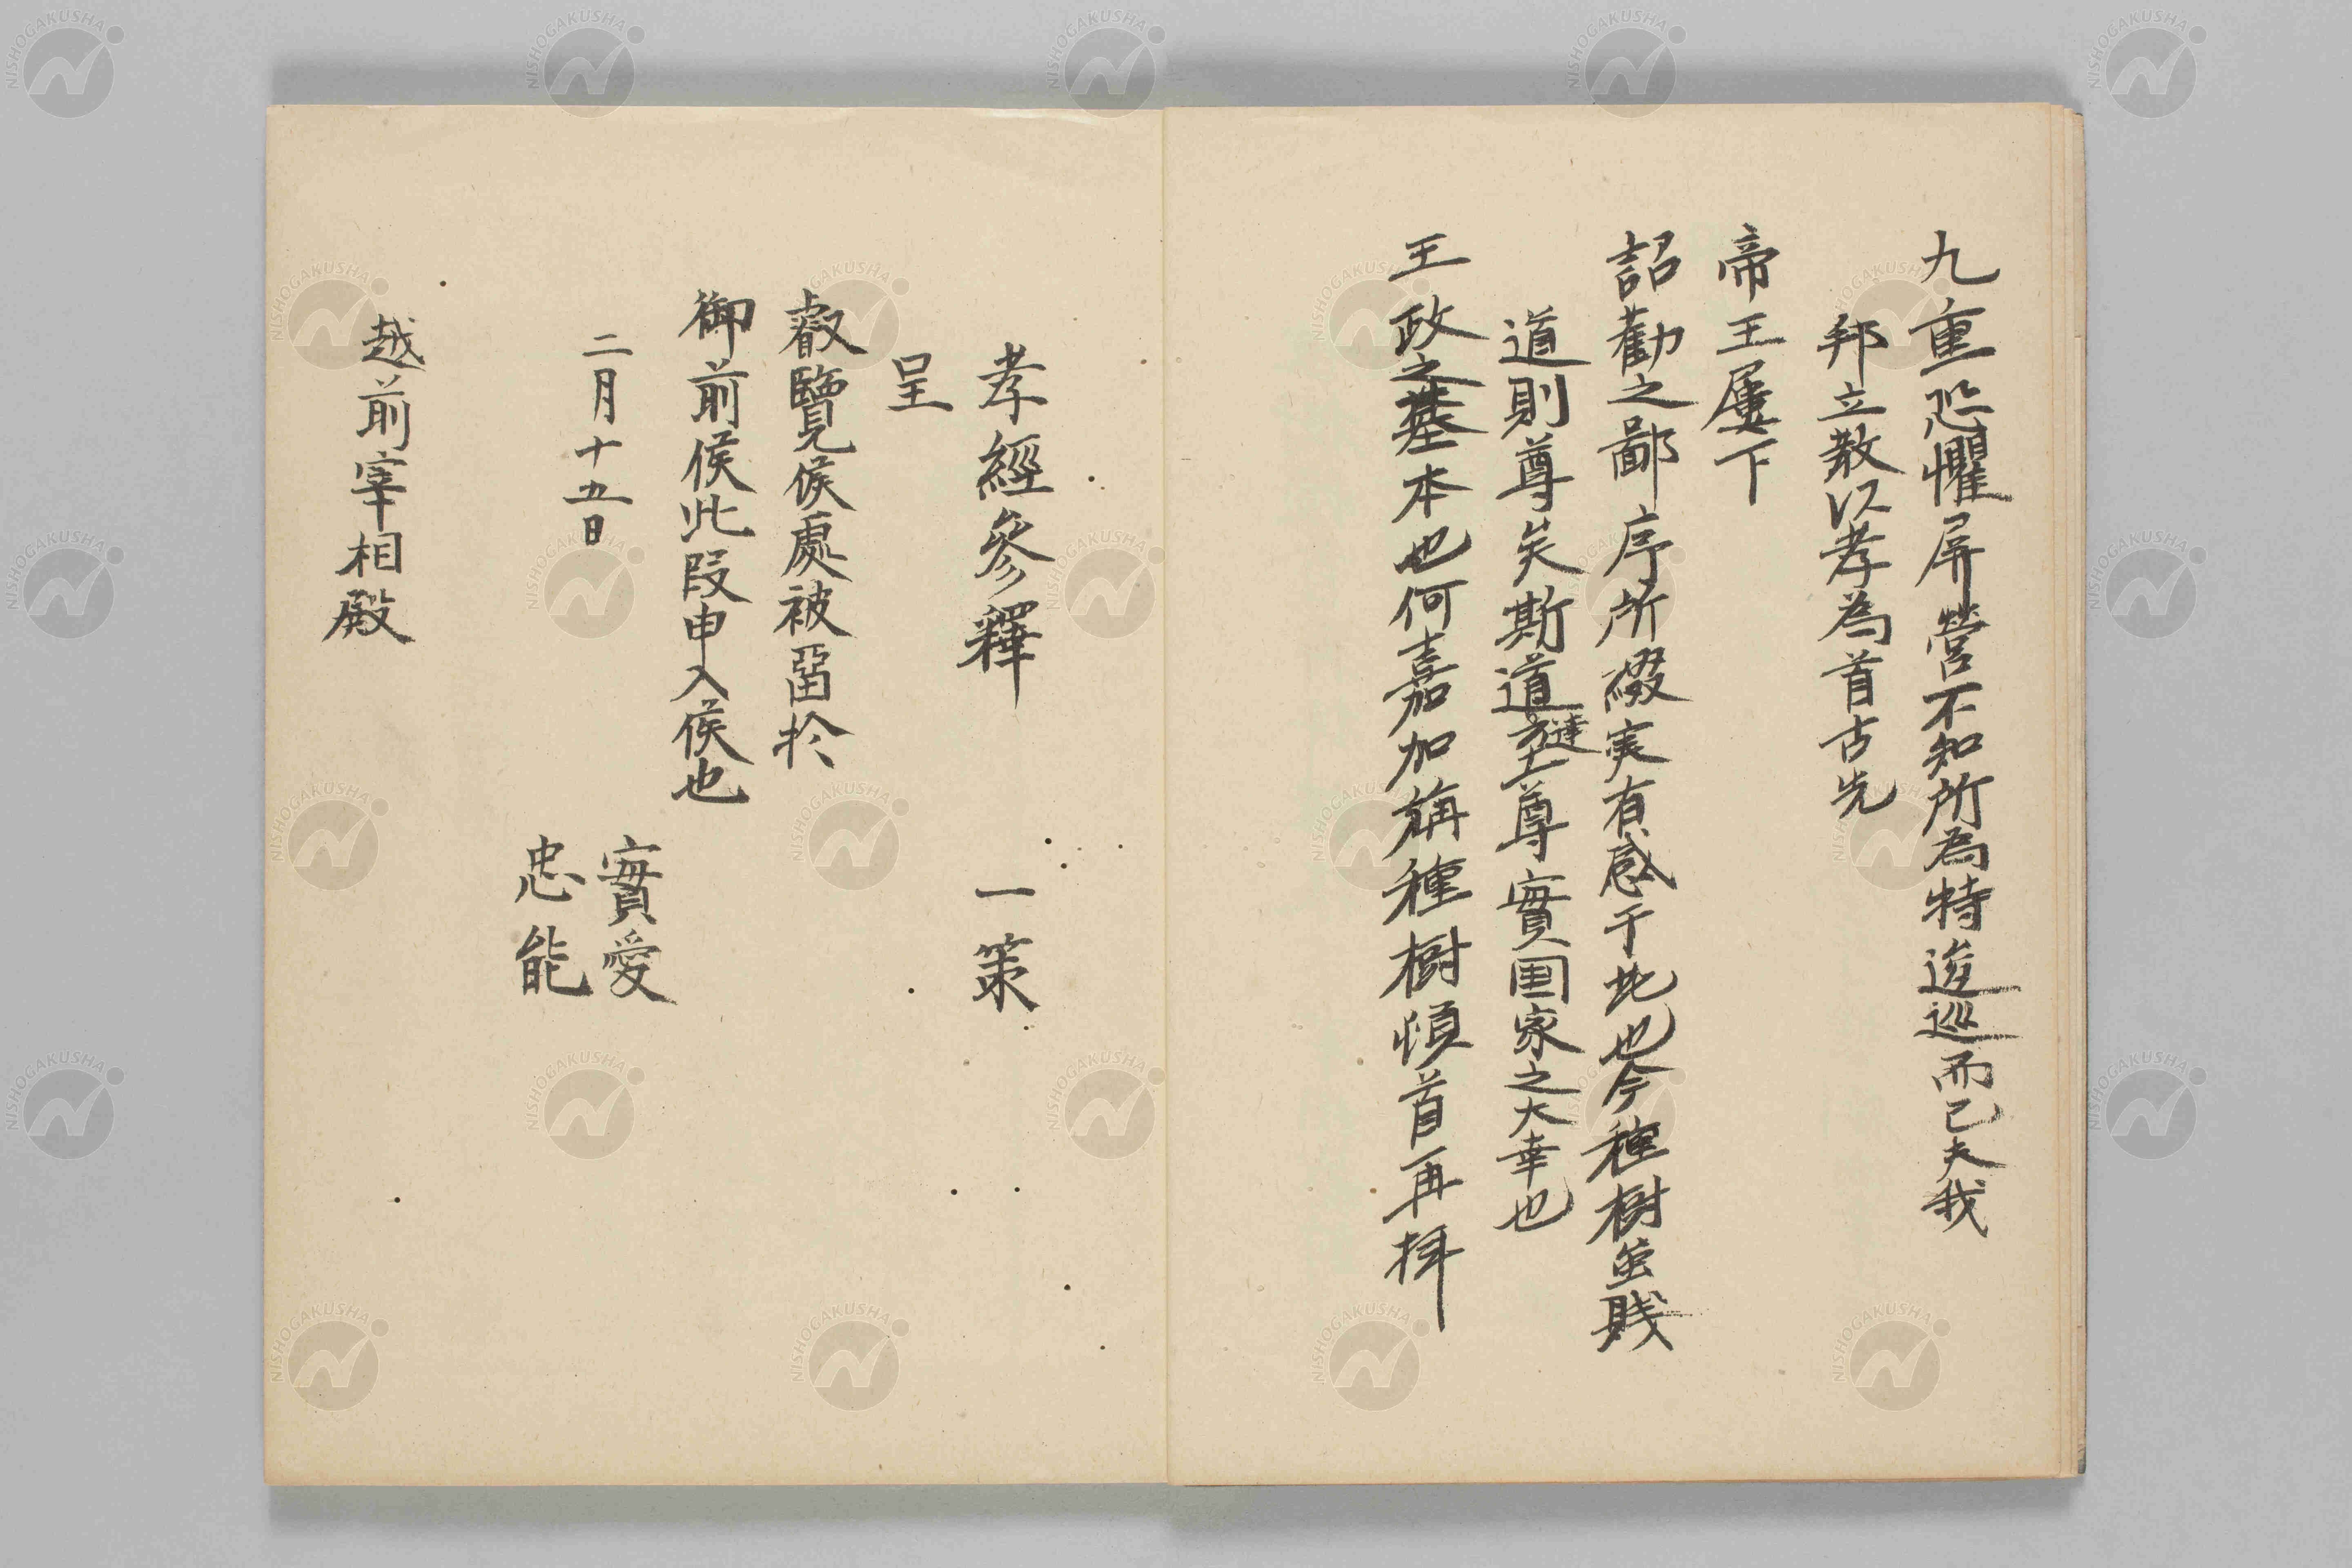 九重恐懼屏營不知所為特逡巡而已夫我
邦立教以孝為首古先
帝王屢下
詔勸之鄙序所綴実有感于此也今種樹雖賤
道則尊矣斯道達尊實国家之大幸也
王政之基本也何嘉加稱種樹頓首再拝
孝經參釋 一策
呈
叡覽候處被畱於
御前候此段申入候也
二月十五日
實愛
忠能
越前宰相殿
NISHOGAKUSHA